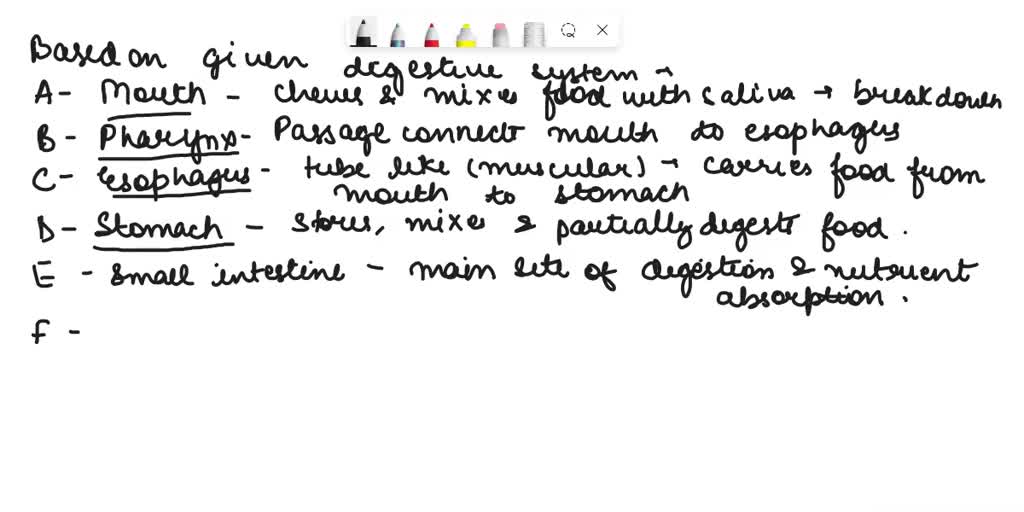 Based on given digestive system →
A - Mouth - chews & mixes food with saliva → breakdown
B - Pharynx - Passage connects mouth to esophagus
C - Esophagus - tube like (muscular) → carries food from
mouth to stomach
D - Stomach - stores, mixes & partially digests food.
E - Small intestine - main site of digestion & nutrient
absorption.
F -